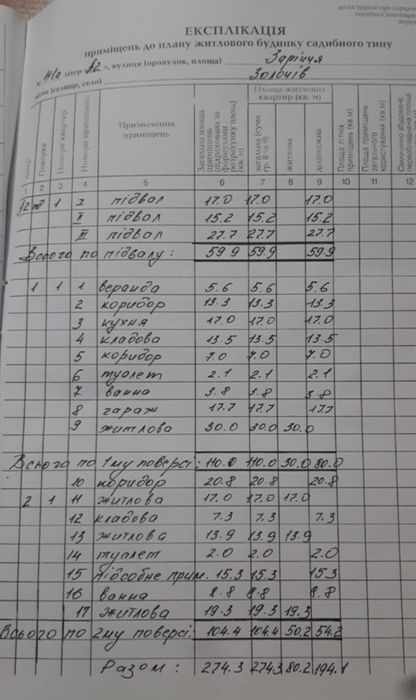 ЕКСПЛІКАЦІЯ
приміщень до плану житлового будинку садибного типу
літер А2, вулиця (провулок, площа) Зарічця
місто (селище, село) Золочів
Поверхи
Номери квартир
Номери приміщень
Призначення приміщень
Загальна площа приміщень (підрахована за формулами розрахунку площ) (кв. м)
Площа житлових квартир (кв. м)
загальна (сума гр. 8 та 9)
житлова
допоміжна
Площа літніх приміщень (кв. м)
Площа приміщень загального користування (кв. м)
1 2 3 4 5 6 7 8 9 10 11
1 I підвал 17.0 17.0 17.0
I підвал 15.2 15.2 15.2
III підвал 27.7 27.7 27.7
Всього по підвалу: 59.9 59.9 59.9
1 1 1 веранда 5.6 5.6 5.6
2 коридор 13.3 13.3 13.3
3 кухня 17.0 17.0 17.0
4 кладова 13.5 13.5 13.5
5 коридор 7.0 7.0 7.0
6 туалет 2.1 2.1 2.1
7 ванна 3.8 3.8 3.8
8 гараж 17.7 17.7 17.7
9 житлова 30.0 30.0 30.0
Всього по 1му поверсі: 110.0 110.0 30.0 80.0
10 коридор 20.8 20.8 20.8
2 1 11 житлова 17.0 17.0 17.0
12 кладова 7.3 7.3 7.3
13 житлова 13.9 13.9 13.9
14 туалет 2.0 2.0 2.0
15 підсобне прим. 15.3 15.3 15.3
16 ванна 8.8 8.8 8.8
17 житлова 19.3 19.3 19.3
Всього по 2му поверсі: 104.4 104.4 50.2 54.2
Разом: 274.3 274.3 80.2 194.1